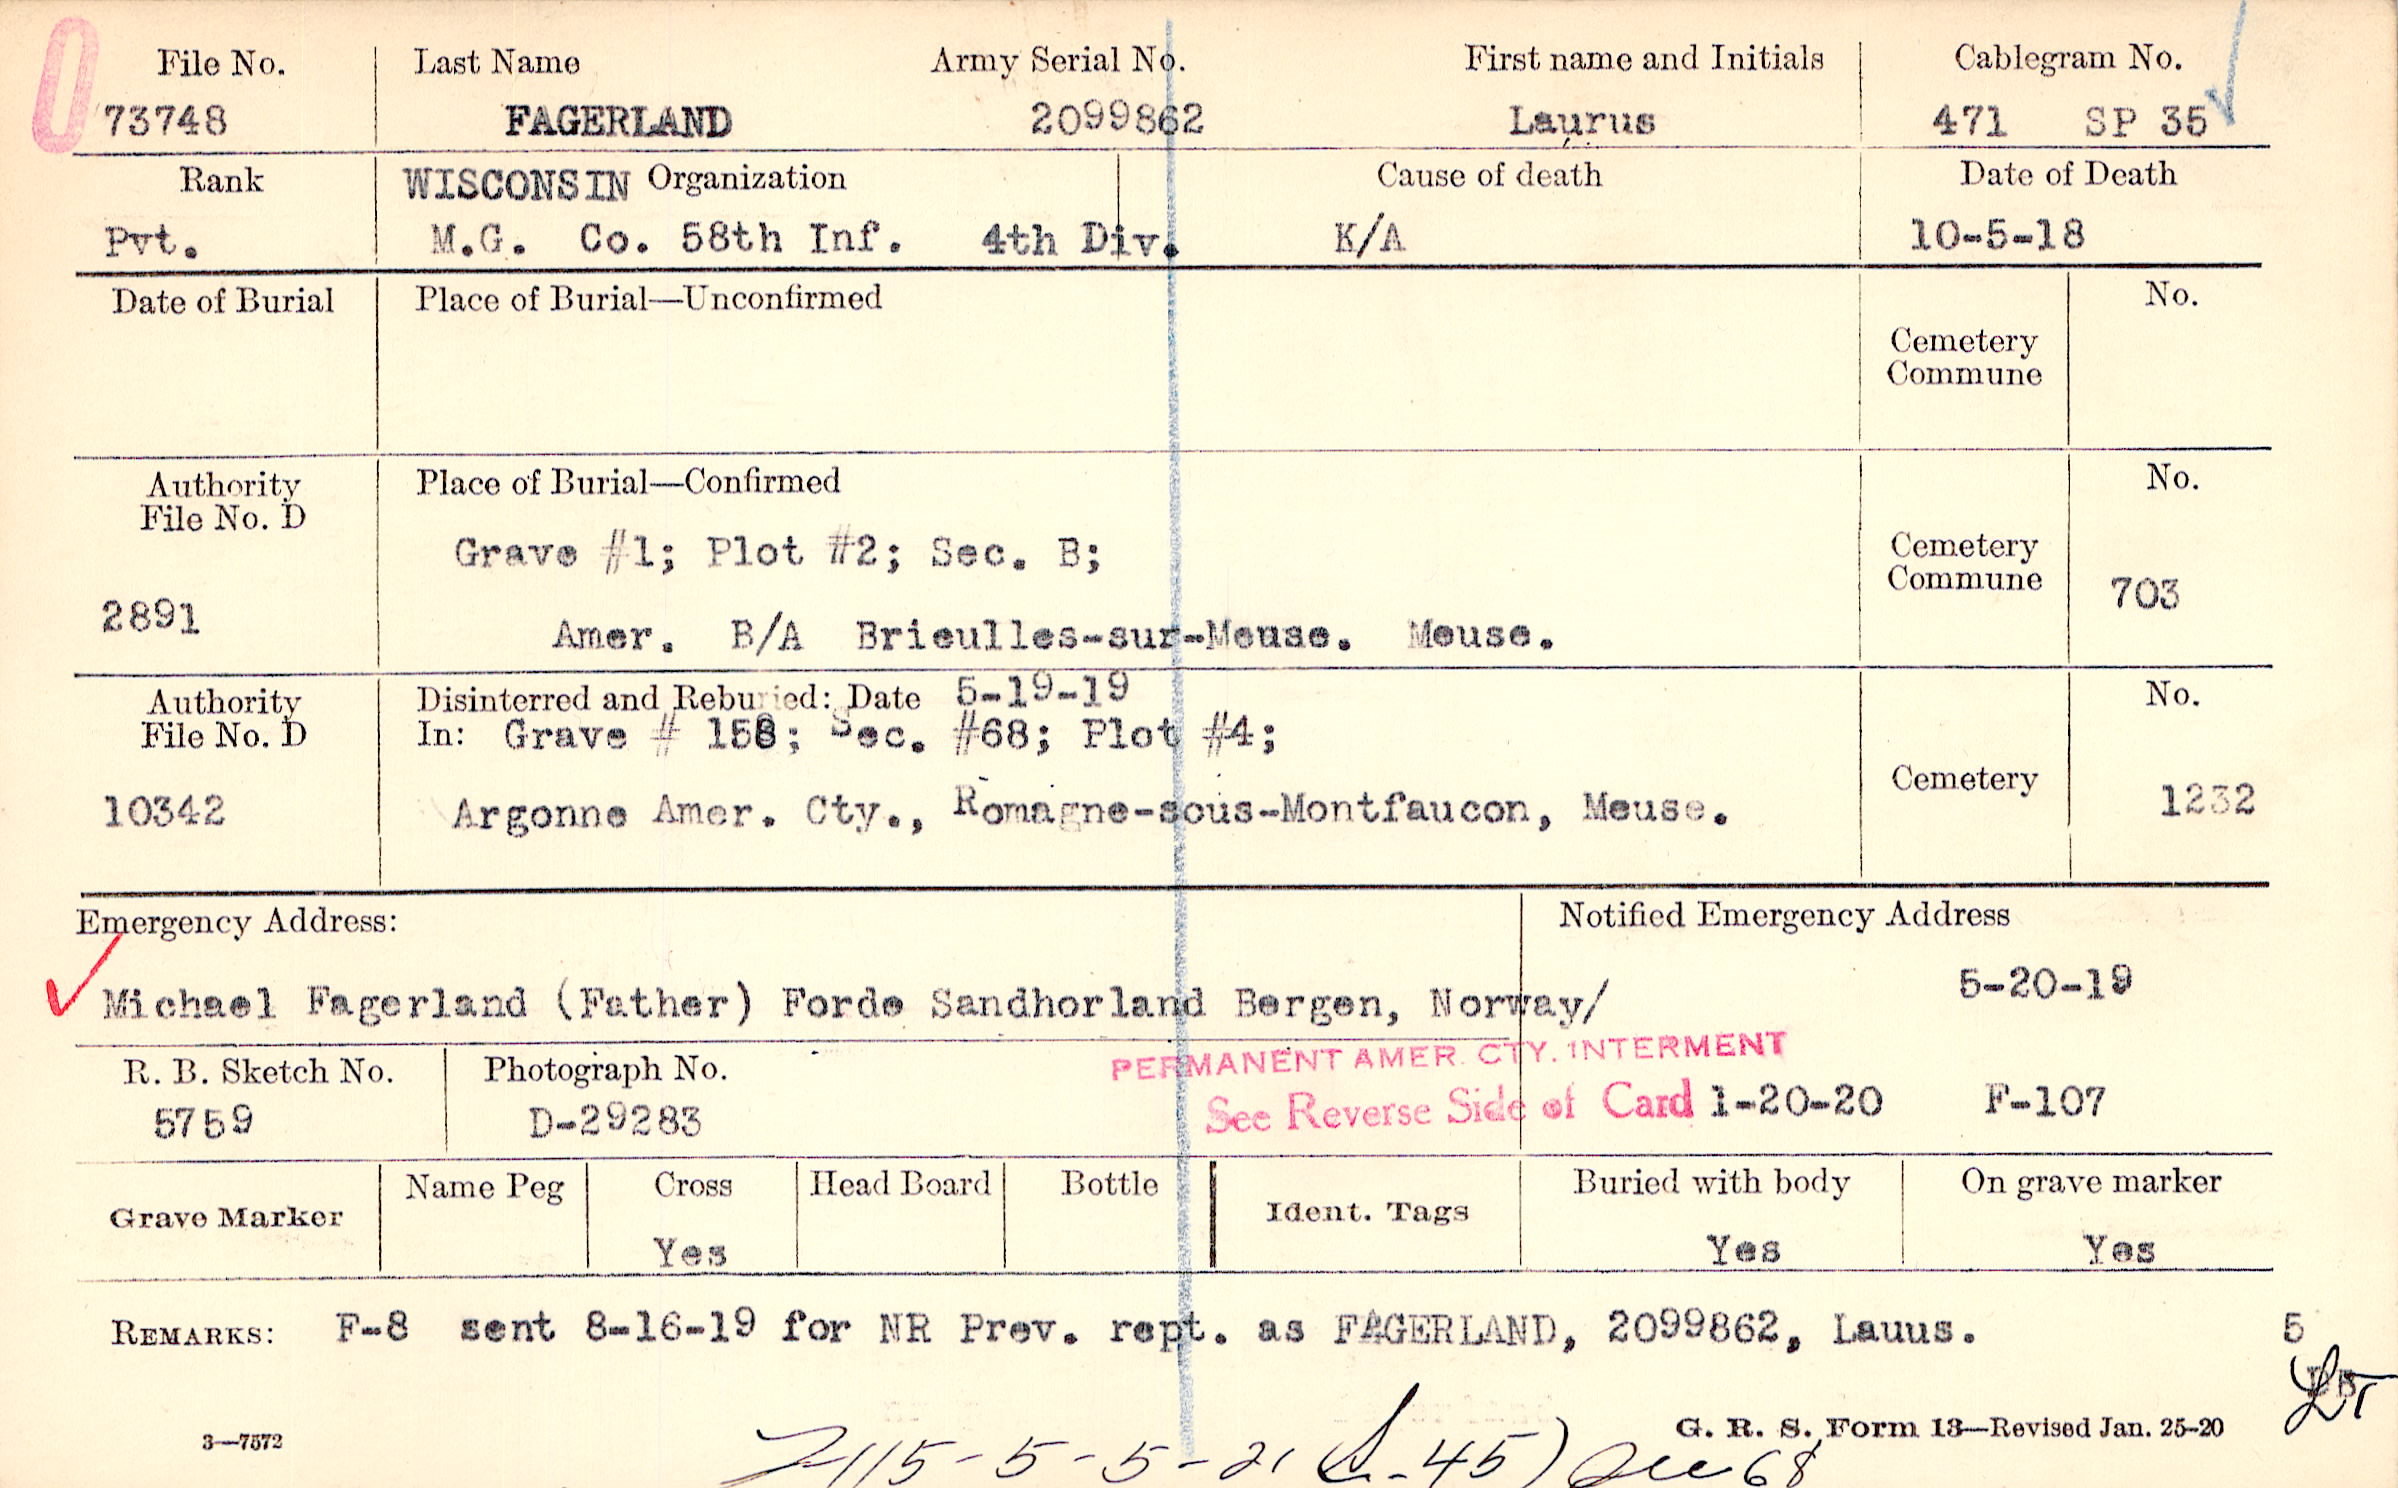 File No. Last Name Army Serial No. First name and Initials Cablegram No.
73748 FAGERLAND 2099862 Laurus 471 SP 35
Rank WISCONSIN Organization Cause of death Date of Death
Pvt. M.G. Co. 58th Inf. 4th Div. K/A 10-5-18
Date of Burial Place of Burial—Unconfirmed No.
Cemetery
Commune
Authority Place of Burial—Confirmed No.
File No. D
Grave #1; Plot #2; Sec. B; Cemetery
Commune 703
2891
Amer. B/A Brieulles-sur-Meuse. Meuse.
Authority Disinterred and Reburied: Date 5-19-19 No.
File No. D In: Grave # 158; Sec. #68; Plot #4;
Cemetery
10342 Argonne Amer. Cty., Romagne-sous-Montfaucon, Meuse. 1232
Emergency Address: Notified Emergency Address
Michael Fagerland (Father) Forde Sandhorland Bergen, Norway/ 5-20-19
PERMANENT AMER. CTY. INTERMENT
R. B. Sketch No. Photograph No.
See Reverse Side of Card 1-20-20 F-107
5759 D-29283
Name Peg Cross Head Board Bottle Buried with body On grave marker
Grave Marker Ident. Tags
Yes Yes Yes
REMARKS: F-8 sent 8-16-19 for NR Prev. rept. as FAGERLAND, 2099862, Lauus. 5
G. R. S. Form 13—Revised Jan. 25-20
3—7572